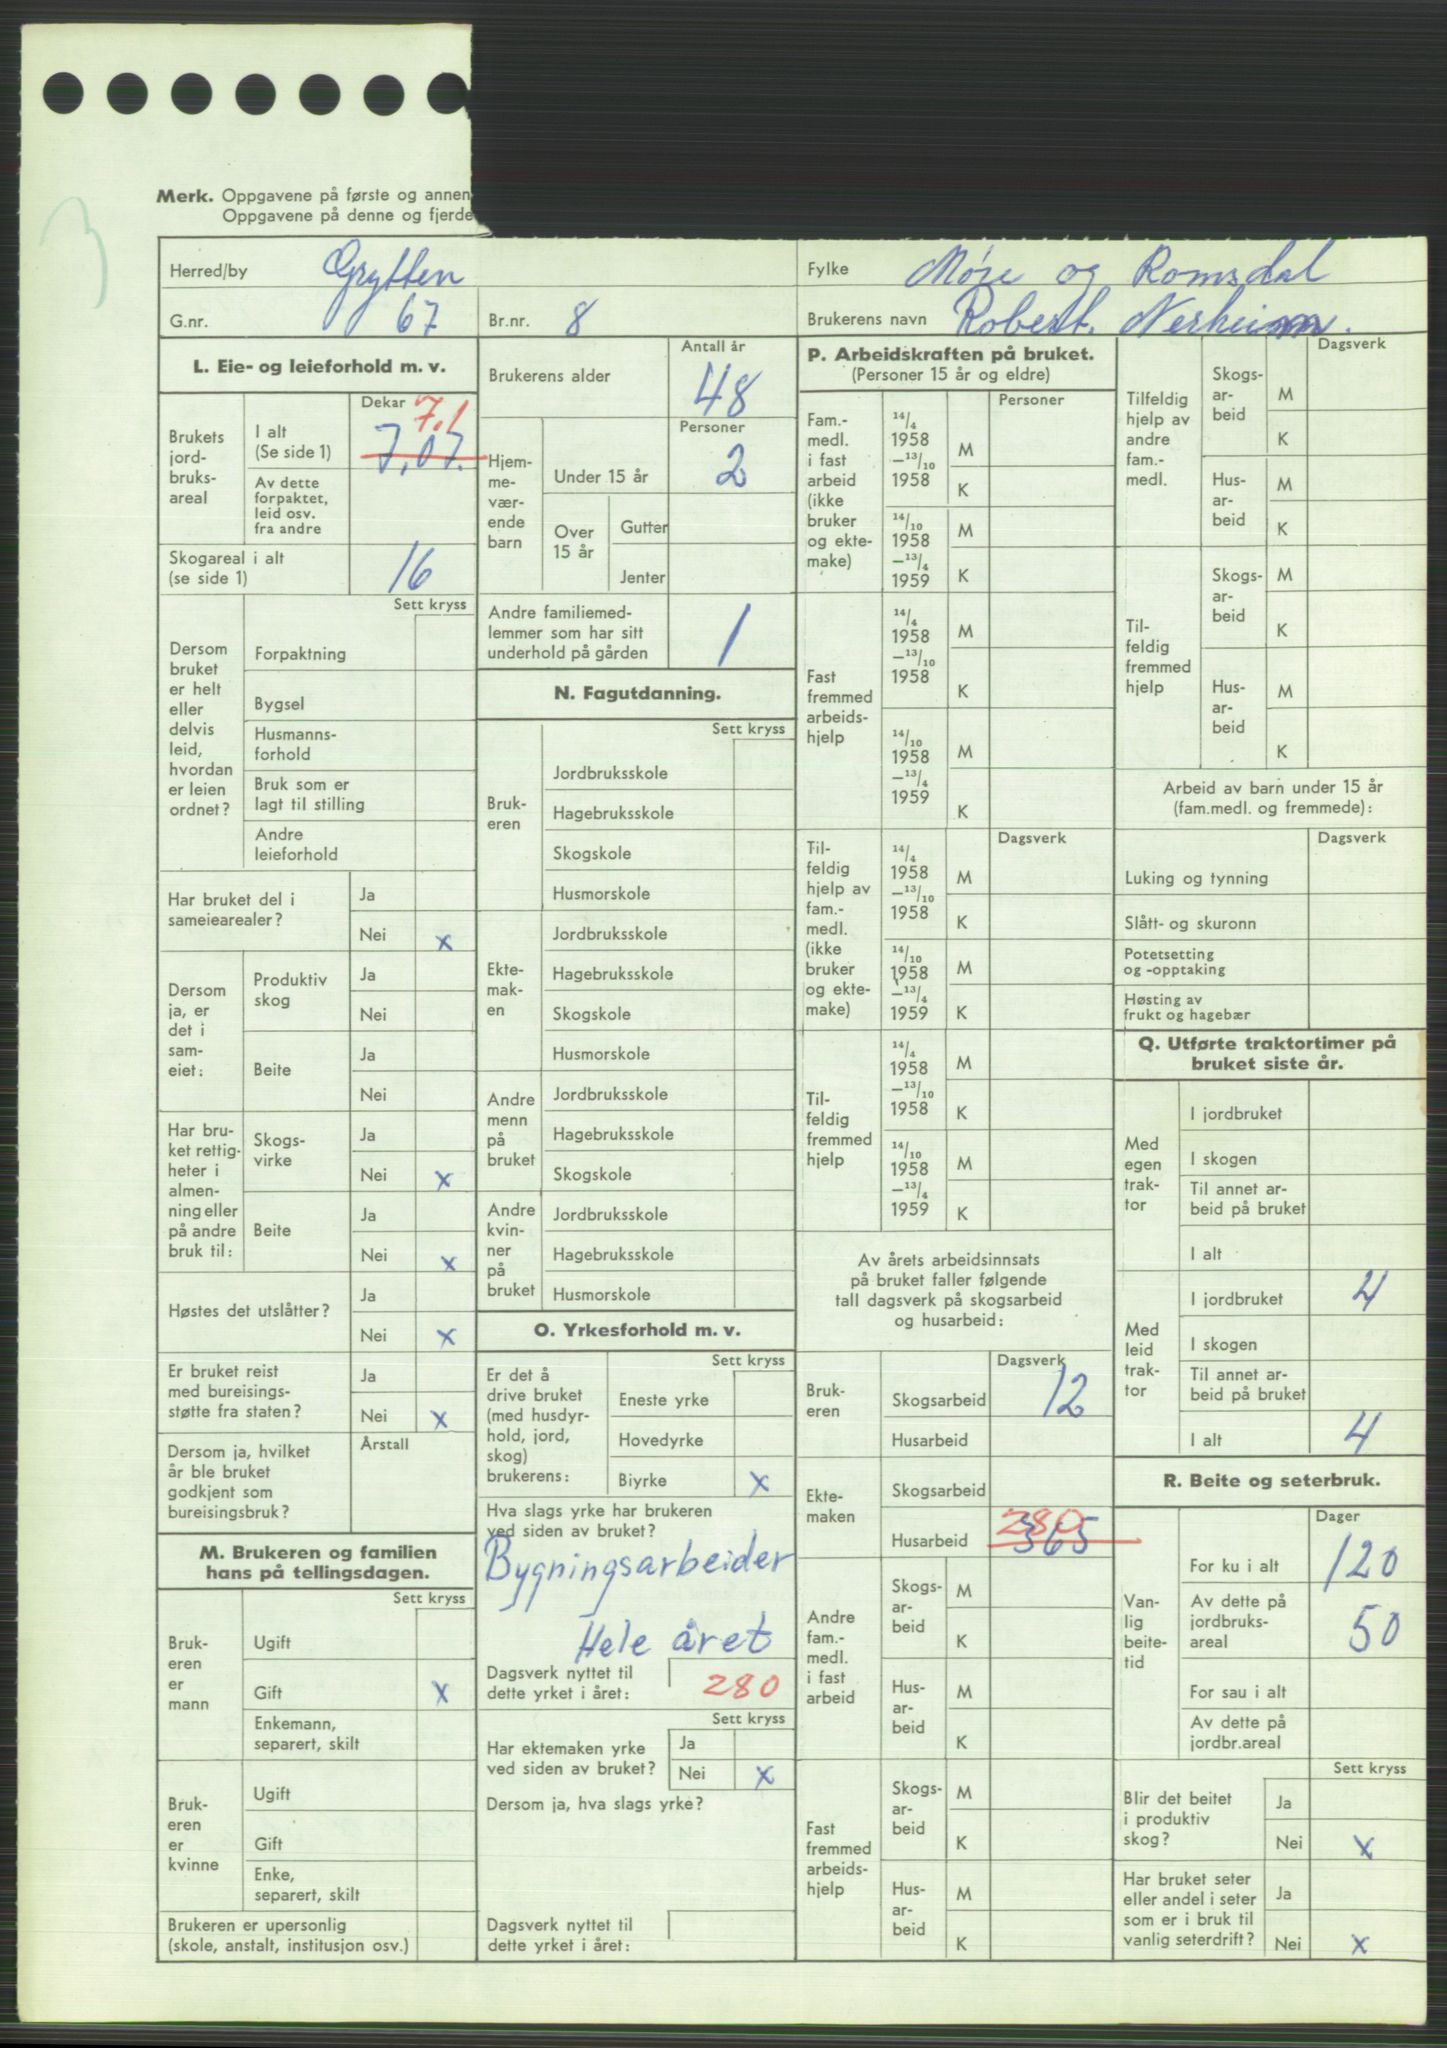 3
Merk. Oppgavene på første og annen
Oppgavene på denne og fjerde
Herred/by Grytten
Fylke Møre og Romsdal
G.nr. 67 Br.nr. 8
Brukerens navn Robert Nerheim.
L. Eie- og leieforhold m. v.
Dekar
Brukets jord-
bruks-
areal
I alt
(Se side 1) 7,07. 7.1
Av dette
forpaktet,
leid osv.
fra andre
Skogareal i alt
(se side 1) 16
Sett kryss
Dersom
bruket
er helt
eller
delvis
leid,
hvordan
er leien
ordnet?
Forpaktning
Bygsel
Husmanns-
forhold
Bruk som er
lagt til stilling
Andre
leieforhold
Har bruket del i
sameiearealer?
Ja
Nei x
Dersom
ja, er
det i
sam-
eiet:
Produktiv
skog
Ja
Nei
Beite
Ja
Nei
Har bru-
ket rettig-
heter i
almen-
ning eller
på andre
bruk til:
Skogs-
virke
Ja
Nei x
Beite
Ja
Nei x
Høstes det utslåtter?
Ja
Nei x
Er bruket reist
med bureisings-
støtte fra staten?
Ja
Nei x
Dersom ja, hvilket
år ble bruket
godkjent som
bureisingsbruk?
Årstall
M. Brukeren og familien
hans på tellingsdagen.
Sett kryss
Bruk-
eren
er
mann
Ugift
Gift x
Enkemann,
separert, skilt
Bruk-
eren
er
kvinne
Ugift
Gift
Enke,
separert, skilt
Brukeren er upersonlig
(skole, anstalt, institusjon osv.)
Antall år
Brukerens alder 48
Personer
Hjem-
me-
vær-
ende
barn
Under 15 år 2
Over
15 år
Gutter
Jenter
Andre familiemed-
lemmer som har sitt
underhold på gården 1
N. Fagutdanning.
Sett kryss
Bruk-
eren
Jordbruksskole
Hagebruksskole
Skogskole
Husmorskole
Ekte-
mak-
en
Jordbruksskole
Hagebruksskole
Skogskole
Husmorskole
Andre
menn
på
bruket
Jordbruksskole
Hagebruksskole
Skogskole
Andre
kvin-
ner
på
bruket
Jordbruksskole
Hagebruksskole
Husmorskole
O. Yrkesforhold m. v.
Sett kryss
Er det å
drive bruket
(med husdyr-
hold, jord,
skog)
brukerens:
Eneste yrke
Hovedyrke
Biyrke x
Hva slags yrke har brukeren
ved siden av bruket?
Bygningsarbeider
Hele året
Dagsverk nyttet til
dette yrket i året: 280
Sett kryss
Har ektemaken yrke
ved siden av bruket?
Ja
Nei x
Dersom ja, hva slags yrke?
Dagsverk nyttet til
dette yrket i året:
P. Arbeidskraften på bruket.
(Personer 15 år og eldre)
Personer
Fam.-
medl.
i fast
arbeid
(ikke
bruker
og ekte-
make)
14/4
1958
—13/10
1958
M
K
14/10
1958
—13/4
1959
M
K
Fast
fremmed
arbeids-
hjelp
14/4
1958
—13/10
1958
M
K
14/10
1958
—13/4
1959
M
K
Dagsverk
Til-
feldig
hjelp av
fam.-
medl.
(ikke
bruker
og ekte-
make)
14/4
1958
—13/10
1958
M
K
14/10
1958
—13/4
1959
M
K
Til-
feldig
fremmed
hjelp
14/4
1958
—13/10
1958
M
K
14/10
1958
—13/4
1959
M
K
Av årets arbeidsinnsats
på bruket faller følgende
tall dagsverk på skogsarbeid
og husarbeid:
Dagsverk
Bruk-
eren
Skogsarbeid 12
Husarbeid
Ekte-
maken
Skogsarbeid
Husarbeid 365 280
Andre
fam.-
medl.
i fast
arbeid
Skogs-
ar-
beid
M
K
Hus-
ar-
beid
M
K
Fast
fremmed
arbeids-
hjelp
Skogs-
ar-
beid
M
K
Hus-
ar-
beid
M
K
Dagsverk
Tilfeldig
hjelp av
andre
fam.-
medl.
Skogs-
ar-
beid
M
K
Hus-
ar-
beid
M
K
Til-
feldig
fremmed
hjelp
Skogs-
ar-
beid
M
K
Hus-
ar-
beid
M
K
Arbeid av barn under 15 år
(fam.medl. og fremmede):
Dagsverk
Luking og tynning
Slått- og skuronn
Potetsetting
og -opptaking
Høsting av
frukt og hagebær
Q. Utførte traktortimer på
bruket siste år.
Med
egen
trak-
tor
I jordbruket
I skogen
Til annet ar-
beid på bruket
I alt
Med
leid
trak-
tor
I jordbruket 4
I skogen
Til annet ar-
beid på bruket
I alt 4
R. Beite og seterbruk.
Dager
Van-
lig
beite-
tid
For ku i alt 120
Av dette på
jordbruks-
areal 50
For sau i alt
Av dette på
jordbr.areal
Sett kryss
Blir det beitet
i produktiv
skog?
Ja
Nei x
Har bruket seter
eller andel i seter
som er i bruk til
vanlig seterdrift?
Ja
Nei x